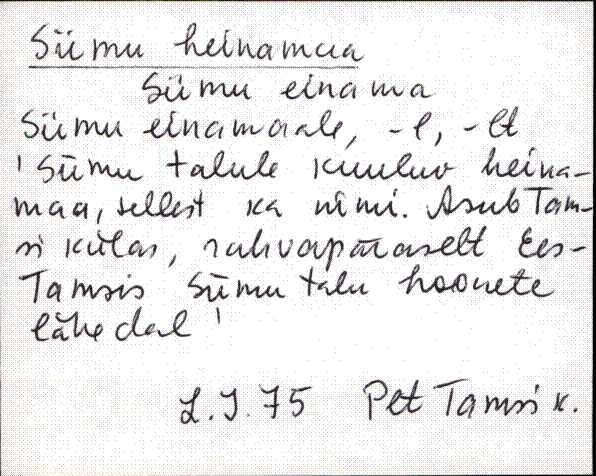 Siimu heinamaa
Siimu einama
Siimu einamaale, -l, -lt
'Siimu talule kuuluv heina-
maa, sellest ka nimi. Asub Tam-
si külas, rahvapäraselt Ees-
Tamsis Siimu talu hoonete
lähedal'
L.J.75 Pet Tamsi k.